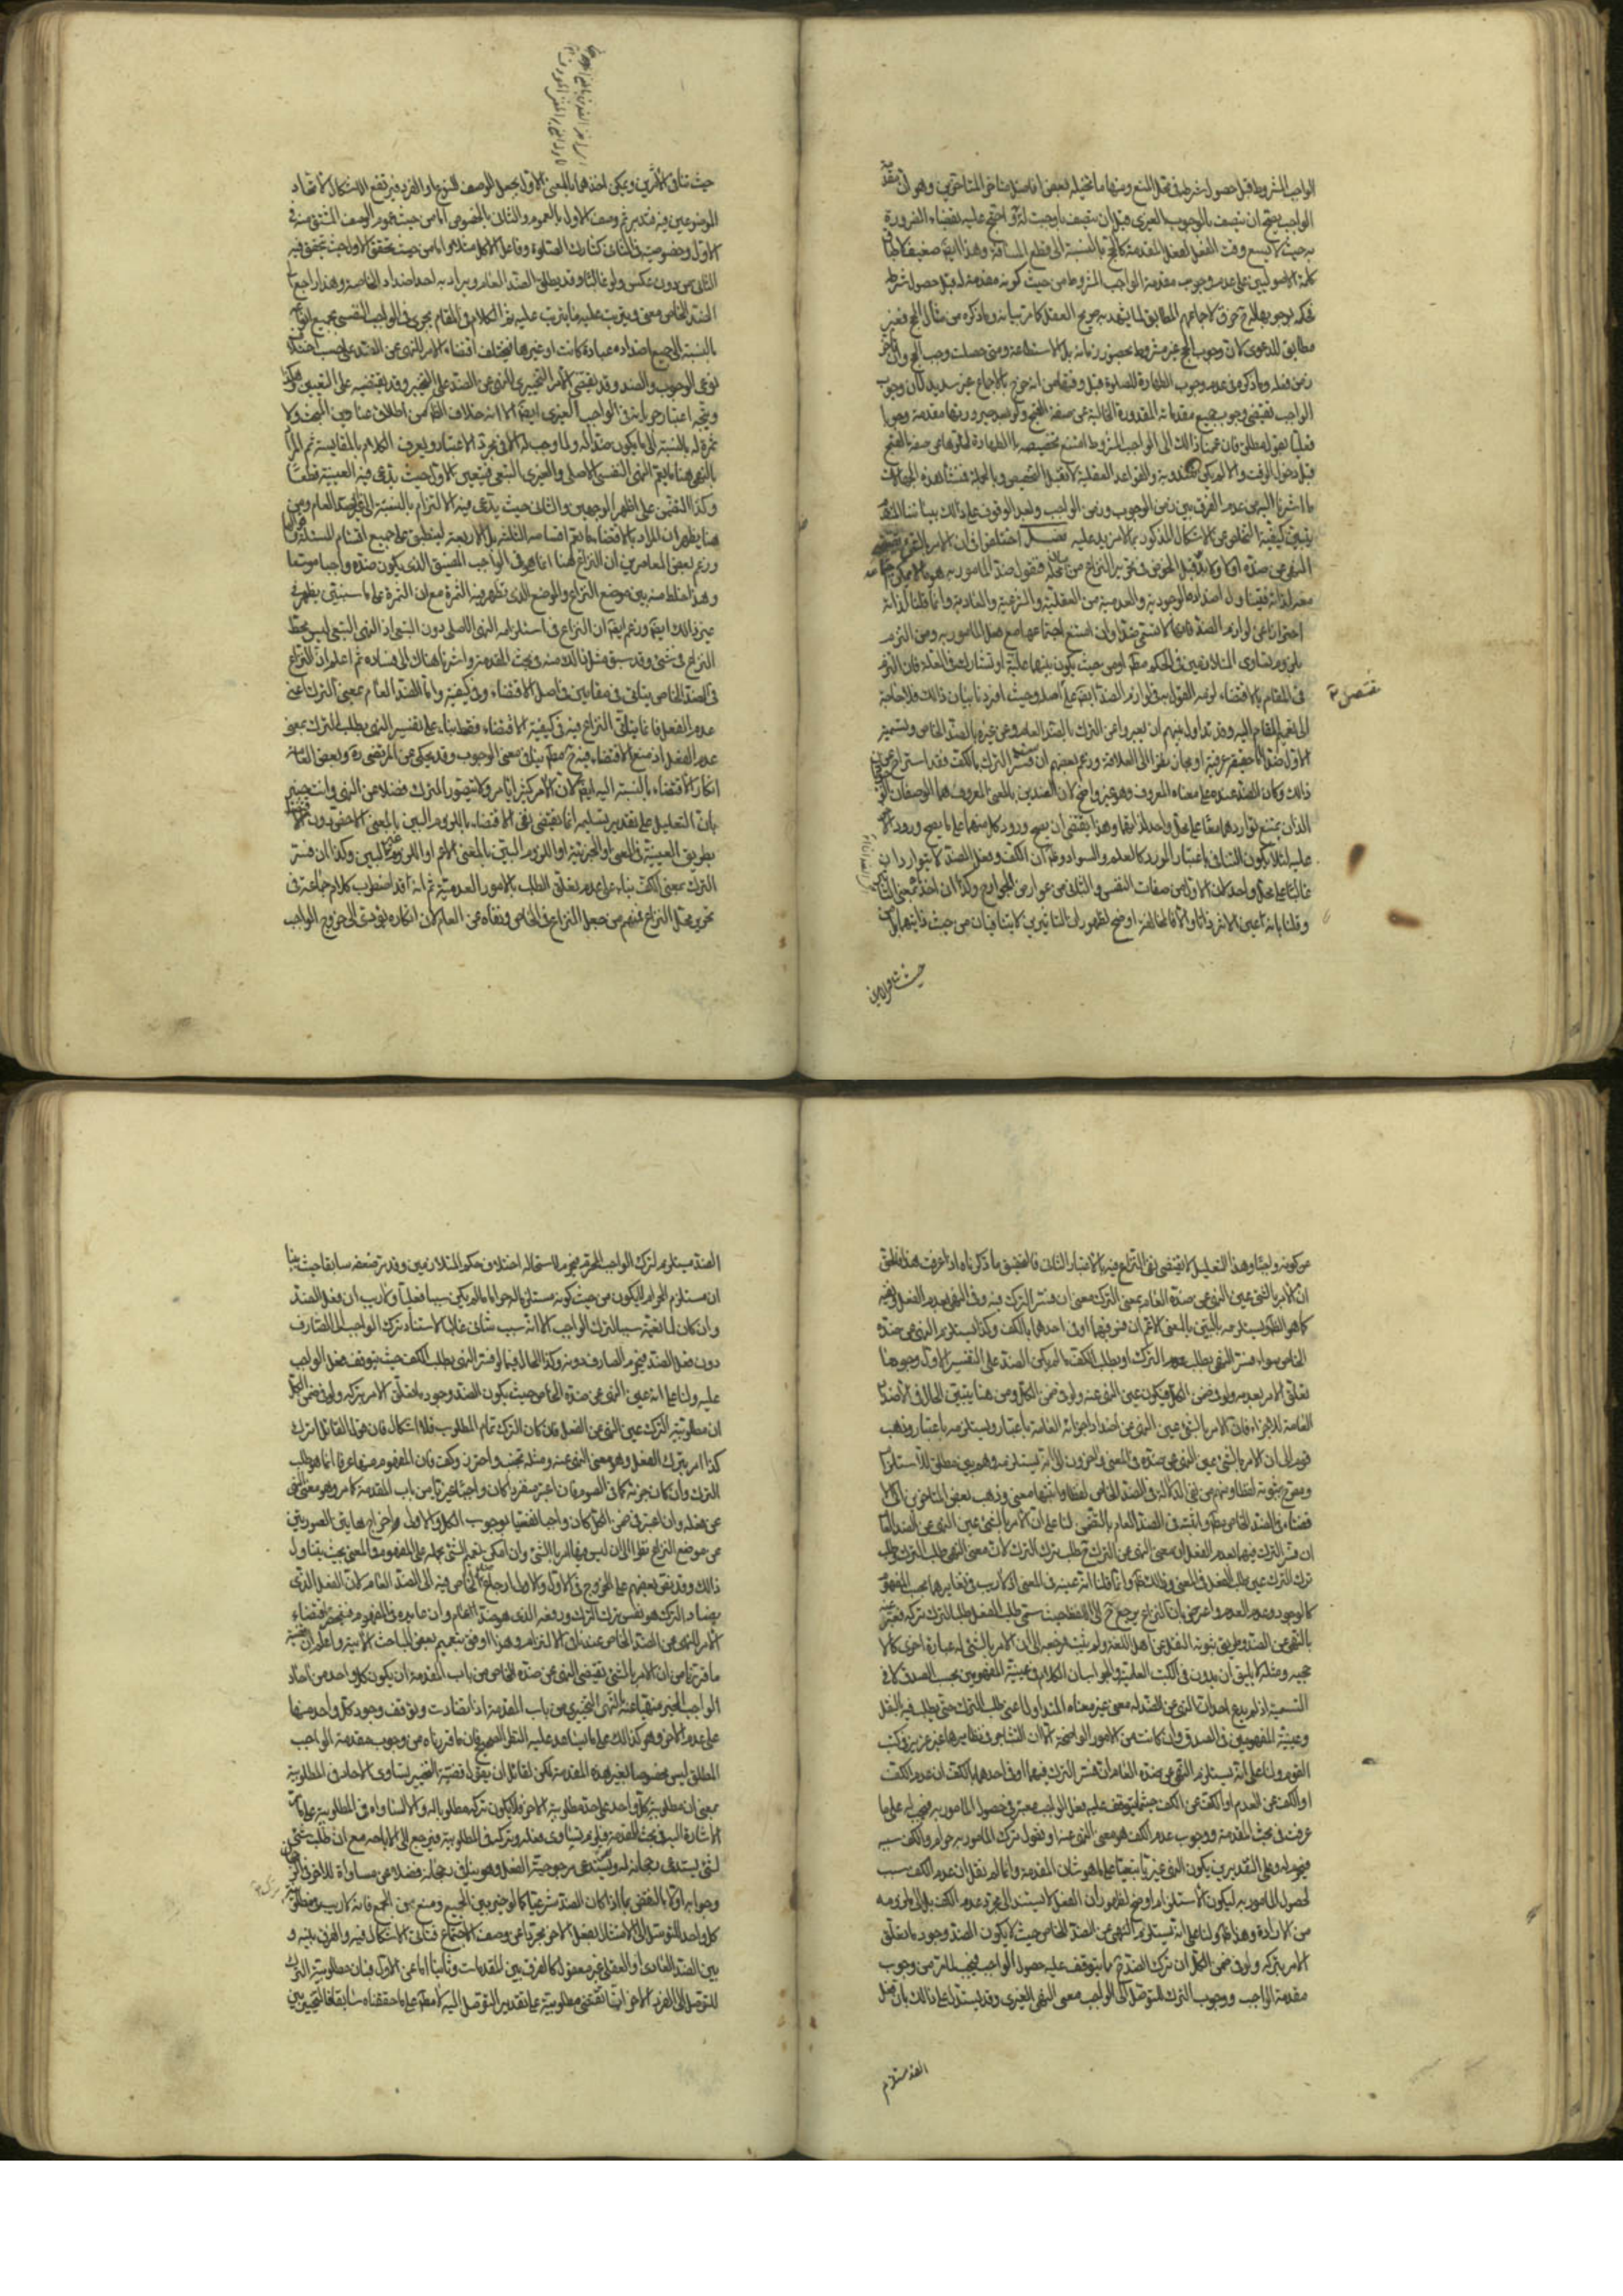 الواجب المشروط قبل حصول شرطه في محل المنع ومنها ما تخيله بعض افاضل متاخري المتاخرين وهو ان مقدمة
الواجب يصح ان يتصف بالوجوب الغيري قبل ان يتصف بما وجبت له واحتج عليه بقضاء الضرورة
به حيث لا يسع وقت الفعل لفعل المقدمة كالحج بالنسبة الى قطع المسافة وهذا ايضا ضعيف
كلمة الاصوليين على عدم وجوب مقدمة الواجب المشروط من حيث كونه مقدمة له قبل حصول شرطه
مطابق للدعوى لان وجوب الحج غير مشروط بحضور زمانه بل الاستطاعة ومتى حصلت وجب الحج وان تاخر
زمن فعله وما ذكره في عدم وجوب الطهارة للصلوة قبل وقتها من انه خرج بالاجماع غير سديد لان وجوب
الواجب يقتضي وجوب جميع مقدماته المقدورة الخالية عن صفة القبح
قبل دخول الوقت والقواعد العقلية لا تقبل التخصيص وبالجملة فمنشأ هذه الخيالات
ما اشرنا اليه من عدم الفرق بين زمن الوجوب وزمن الواجب وبعد الوقوف على ذلك
يتبين كيفية التخلص عن الاشكال المذكور بما لا مزيد عليه فصل اختلفوا في ان الامر بالشيء هل يقتضي
النهي عن ضده او لا ولا بد قبل الخوض من تحرير النزاع من محله فنقول ضد المامور به هو ما لا يمكن
معه لذاته فيتناول اضداده الوجودية والعدمية من العقلية والشرعية والعادية وانما قلنا لذاته
احترازا عن لوازم الضد فانها لا تسمى ضدا وان امتنع اجتماعها مع فعل المامور به ومن التزم
بلزوم تساوي المتلازمين في الحكم مطلقا او من حيث يكون بينهما علية او تشارك في العلة فان التزم
في المقام بالاقتضاء لزمه القول به في لوازم الضد ايضا على اصله وحيث افردنا بيان ذلك فلا حاجة
الى تعميم المقام اليه وقد تداول بينهم ان يعبروا عن الترك بالضد العام وعن غيره بالضد الخاص وتسمية
الاول ضدا اما حقيقة عرفية او مجاز نظرا الى العلاقة وزعم بعضهم ان من فسر الترك بالكف فقد استراح عن
ذلك وكان الضد عنده على معناه المعروف وهو غير واضح لان الضدين بالمعنى المعروف هما الوصفان
اللذان يمتنع تواردهما معا على محل واحد لذاتهما وهذا يقتضي ان يصح ورود كل منهما على ما يصح ورود الاخر
عليه لئلا يكون التنافي باعتبار المورد كالعلم والسواد وظاهر ان الكف وفعل الضد لا يتواردان
غالبا على محل واحد لان الاول من صفات النفس والثاني من عوارض الجوارح وكذا ان اخذ بمعنى
وقلنا بانه عين الاثر ذاتا والا فالمخالفة اوضح لظهور ان التاثيرين لا يتنافيان من حيث ذاتيهما بل من
حيث تنافي الاثرين
حيث تنافي الاثرين ويمكن اخذهما بالمعنى الاول بجعل الوصف النوع او الفرد فيرتفع الاشكال لاتحاد
الموضوعين فيه فتدبر ثم وصف الاول بالعموم والثاني بالخصوص اما من حيث عموم الوصف المشتق منه في
الاول وخصوصيته في الثاني كتارك الصلوة وفاعل الاكل مثلا واما من حيث تحقق الاول حيث تحقق فيه
الثاني من دون عكس ولو غالبا وقد يطلق الضد العام ويراد به احد اضداده الخاصة وهذا راجع الى
الضد الخاص معنى ويترتب عليه ما يترتب عليه ثم الكلام في المقام يجري في الواجب النفسي بجميع انواعه
بالنسبة الى جميع اضداده عبادة كانت او غيرها فيختلف اقتضاء الامر للنهي عن الضد على حسب اختلاف
نوعي الوجوب والضد وقد يقتضي الامر التخييري النهي عن الضد على التخيير وقد يقتضيه على التعيين
ويتجه اعتبار جريانه في الواجب الغيري ايضا الا انه خلاف الظاهر من اطلاق عناوين المبحث ولا
ثمرة له بالنسبة الى ما يكون ضدا له ولما وجب له الا في مجرد الاعتبار ويعرف الكلام بالمقايسة ثم المراد
بالنهي هنا ما يعم النهي النفسي والاصلي والغيري التبعي فيتعين الاول حيث يدعى فيه العينية قطعا
وكذا التضمن على اظهر الوجهين والثاني حيث يدعى فيه الالتزام بالنسبة الى غير ضد العام ومن
هنا يظهر ان المراد بالاقتضاء ما يعم اقسامه الثلثة بل الاربعة لينطبق على جميع اقسام المسئلة
وزعم بعض المعاصرين ان النزاع هنا انما هو في الواجب المضيق الذي يكون ضده واجبا موسعا
وهذا خلط منه بين موضع النزاع والموضع الذي تظهر فيه الثمرة مع ان الثمرة على ما سنبين يظهر في
غير ذلك ايضا وزعم ايضا ان النزاع في استلزامه النهي الاصلي دون التبعي اذ النهي التبعي ليس محط
النزاع في شيء وقد سبق مثل ذلك منه في بحث المقدمة واشرنا هناك الى فساده ثم اعلم ان النزاع
في الضد الخاص يتاتى في مقامين في اصل الاقتضاء وفي كيفيته واما الضد العام بمعنى الترك اعني
عدم الفعل فانما يتاتى النزاع فيه في كيفية الاقتضاء فقط بناء على تفسير النهي بطلب الترك بمعنى
عدم الفعل اذ منع الاقتضاء فيه ينافي معنى الوجوب وقد يحكى عن المرتضى ره وبعض العامة
انكار الاقتضاء بالنسبة اليه ايضا لان الامر كثيرا يامر ولا يتصور الترك فضلا عن النهي وانت خبير
بان التعليل على تقدير تسليمه انما يقتضي نفي الاقتضاء باللزوم البين بالمعنى الاخص دون الاقتضاء
بطريق العينية في المعنى او الجزئية او اللزوم البين بالمعنى الاعم او اللزوم غير البين وكذا ان فسر
الترك بمعنى الكف بناء على عدم تعلق الطلب بالامور العدمية ثم انه قد اضطرب كلام جماعة في
تحرير محل النزاع فمنهم من جعل النزاع في الخاص ونفاه عن العام لان انكاره يؤدي الى خروج الواجب
عن كونه واجبا وهذا التعليل لا يقتضي نفي النزاع فيه بالاعتبار الثاني فالتحقيق ما ذكرناه اذا عرفت هذا فالحق
ان الامر بالشيء عين النهي عن ضده العام بمعنى الترك معنى ان فسر الترك فيه وفي النهي بعدم الفعل
كما هو الظاهر ويستلزمه بالبين بالمعنى الاعم ان فسر فيهما او في احدهما بالكف وكذا يستلزم النهي عن ضده
الخاص سواء فسر النهي بطلب عدم الترك او بطلب الكف ما لم يكن الضد على التفسير الاول وجوديا
تعلق الامر بعدمه ولو في ضمن الكل فيكون عين النهي عنه ولو في ضمن الكل ومن هنا يتبين الحال في الاضداد
العامة للاجزاء فان الامر بالشيء عين النهي عن اضداد اجزائه العامة باعتبار ويستلزمه باعتبار وذهب
قوم الى ان الامر بالشيء عين النهي عن ضده في المعنى واخرون الى انه يستلزمه وهم بين مطلق للاستلزام
ومصرح بثبوته لفظا ومنهم من نفى الدلالة في الضد الخاص لفظا واثبتها معنى وذهب بعض المتاخرين الى
في الضد الخاص مطلقا واثبته في الضد العام بالتضمن لنا على ان الامر بالشيء عين النهي عن الضد العام
ان فسر الترك فيهما بعدم الفعل ان معنى النهي عن الترك طلب ترك الترك لان معنى النهي طلب الترك وطلب
ترك الترك عين طلب الفعل في المعنى وذلك ظاهر وانما قلنا انه عينه في المعنى اذ لا ريب في تغايرهما بحسب المفهوم
كالوجود وعدم العدم واعترض بان النزاع يرجع الى اللفظ حيث سمى طلب الفعل طلبا لترك تركه فعبر عنه
بالنهي عن الضد وطريق ثبوته النقل عن اهل اللغة ولم يثبت
ومثله لا يليق ان يدون في الكتب العلمية والجواب ان الكلام في عينية المفهومين بحسب الصدق لا في
التسمية اذ لم يدع احد ان النهي عن الضد له معنى غير معناه المتداول اعني طلب الترك حتى يطلب فيه النقل
وعينية المفهومين في الصدق وان كانت من الامور الواضحة الا ان التشاجر في نظايرها غير عزيز في كتب
القوم ولنا على انه يستلزم النهي عن ضده العام ان فسر الترك فيهما او في احدهما بالكف ان عدم الكف
او الكف عن العدم او الكف عن الكف حيثما يتوقف عليه فعل الواجب معتبر في حصول المامور به فيجب له على ما
عرفت في بحث المقدمة ووجوب عدم الكف هو معنى النهي عنه او نقول ترك المامور به حرام والكف سببه
فيحرم له وعلى التقديرين يكون النهي غيريا تبعيا على ما هو شان المقدمة وانما لم نقل ان عدم الكف سبب
لحصول المامور به ليكون الاستلزام اوضح لظهور ان الفعل لا يستند الى مجرد عدم الكف بل الى ما يلزمه
من الارادة وهذا ظاهر ولنا على انه يستلزم النهي عن الضد الخاص حيث لا يكون الضد وجودا ما تعلق
الامر بتركه ولو في ضمن الكل ان ترك الضد ما يتوقف عليه حصول الواجب فيجب لما مر من وجوب
مقدمة الواجب ووجوب الترك للتوصل الى الواجب معنى النهي الغيري وقد يستدل على ذلك بان فعل
الضد مستلزم
الضد مستلزم لترك الواجب المحرم فيحرم لاستحالة اختلاف حكم المتلازمين وقد مر ضعفه سابقا حيث بينا
ان مستلزم الحرام لا يكون من حيث كونه مستلزما له حراما ما لم يكن سببا فعليا ولا ريب ان فعل الضد
وان كان لمانعيته سببا لترك الواجب الا انه سبب شاني غالبا لاستناد ترك الواجب الى الصارف
دون فعل الضد فيحرم الصارف دونه وكذا الحال فيما لو فسر النهي بطلب الكف حيث يتوقف فعل الواجب
عليه ولنا على انه عين النهي عن ضده الخاص حيث يكون الضد وجود ما تعلق الامر بتركه ولو في ضمن الكل
ان مطلوبية الترك عين النهي عن الفعل فان كان الترك تمام المطلوب فلا اشكال فان قولنا القائل اترك
كذا امر بترك الفعل وهو معنى النهي عنه ومثله تجنب واحترز وكف فان المفهوم منها عرفا انما هو طلب
الترك وان كان جزئه كما في الصوم فان اعتبر منفردا كان واجبا غيريا من باب المقدمة كما مر وهو معنى النهي
عن فعله وان اعتبر في ضمن الكل كان واجبا نفسيا بوجوب الكل
عن موضع النزاع نظرا الى ان ليس فيهما امر بالشيء وان امكن تعميم الشيء بحمله على المفهوم والمعنى بحيث يتناول
ذلك وقد نص بعضهم على الخروج في الاول والاولى ارجاع الضد الخاص فيه الى الضد العام لان الفعل الذي
يضاد الترك هو نفس ترك الترك ورفعه الذي هو ضده العام وان غايره في المفهوم فيتحد اقتضاء
الامر للنهي عن الضد الخاص عند ذلك الالتزام وهذا اوفق بتعميم بعض المباحث الاتية واعلم ان قضية
ما قررنا من ان الامر بالشيء يقتضي النهي عن ضده الخاص من باب المقدمة ان يكون كل واحد من احاد
الواجب المخير منهيا عنه بالنهي التخييري من باب المقدمة اذا تضادت وتوقف وجود كل واحد منها
على عدم الاخر وهو كذلك على ما يساعد عليه النظر الصحيح فان ما قررناه من وجوب مقدمة الواجب
المطلق ليس مخصوصا بغير هذه المقدمة لكن لقائل ان يقول قضية التخيير تساوي الاحاد في المطلوبية
بمعنى ان مطلوبية كل واحد على حد مطلوبية الاخر فلا يكون تركه مطلوبا له والا لساواه في المطلوبية على ما مر
الاشارة اليه في بحث المقدمة فيلزم تساوي فعله وتركه في المطلوبية فيرجع الى الاباحة مع ان طلب شيء
لشيء يستدعي رجحانه له ويستدعي مرجوحية الفعل وهو ينافي رجحانه فضلا عن مساواته للاخر في الرجحان
وجوابه اولا بالنقض بما اذا كان الضد شرعيا كما لو خير بين الجميع ومنع من الجمع فانه لا ريب في مطلوبية ترك
كل واحد للتوصل الى الامتثال بفعل الاخر مجردا عن وصف الاجتماع فيتاتى الاشكال فيه والفرق بينه و
بين الضد العادي او العقلي غير معقول كالفرق بين المقدمات وثانيا اما عن الاول فبان مطلوبية الترك
للتوصل الى الفرد الاخر انما تقتضي مطلوبية على تقدير التوصل اليه لا مطلقا على ما حققناه سابقا فالتخيير بين